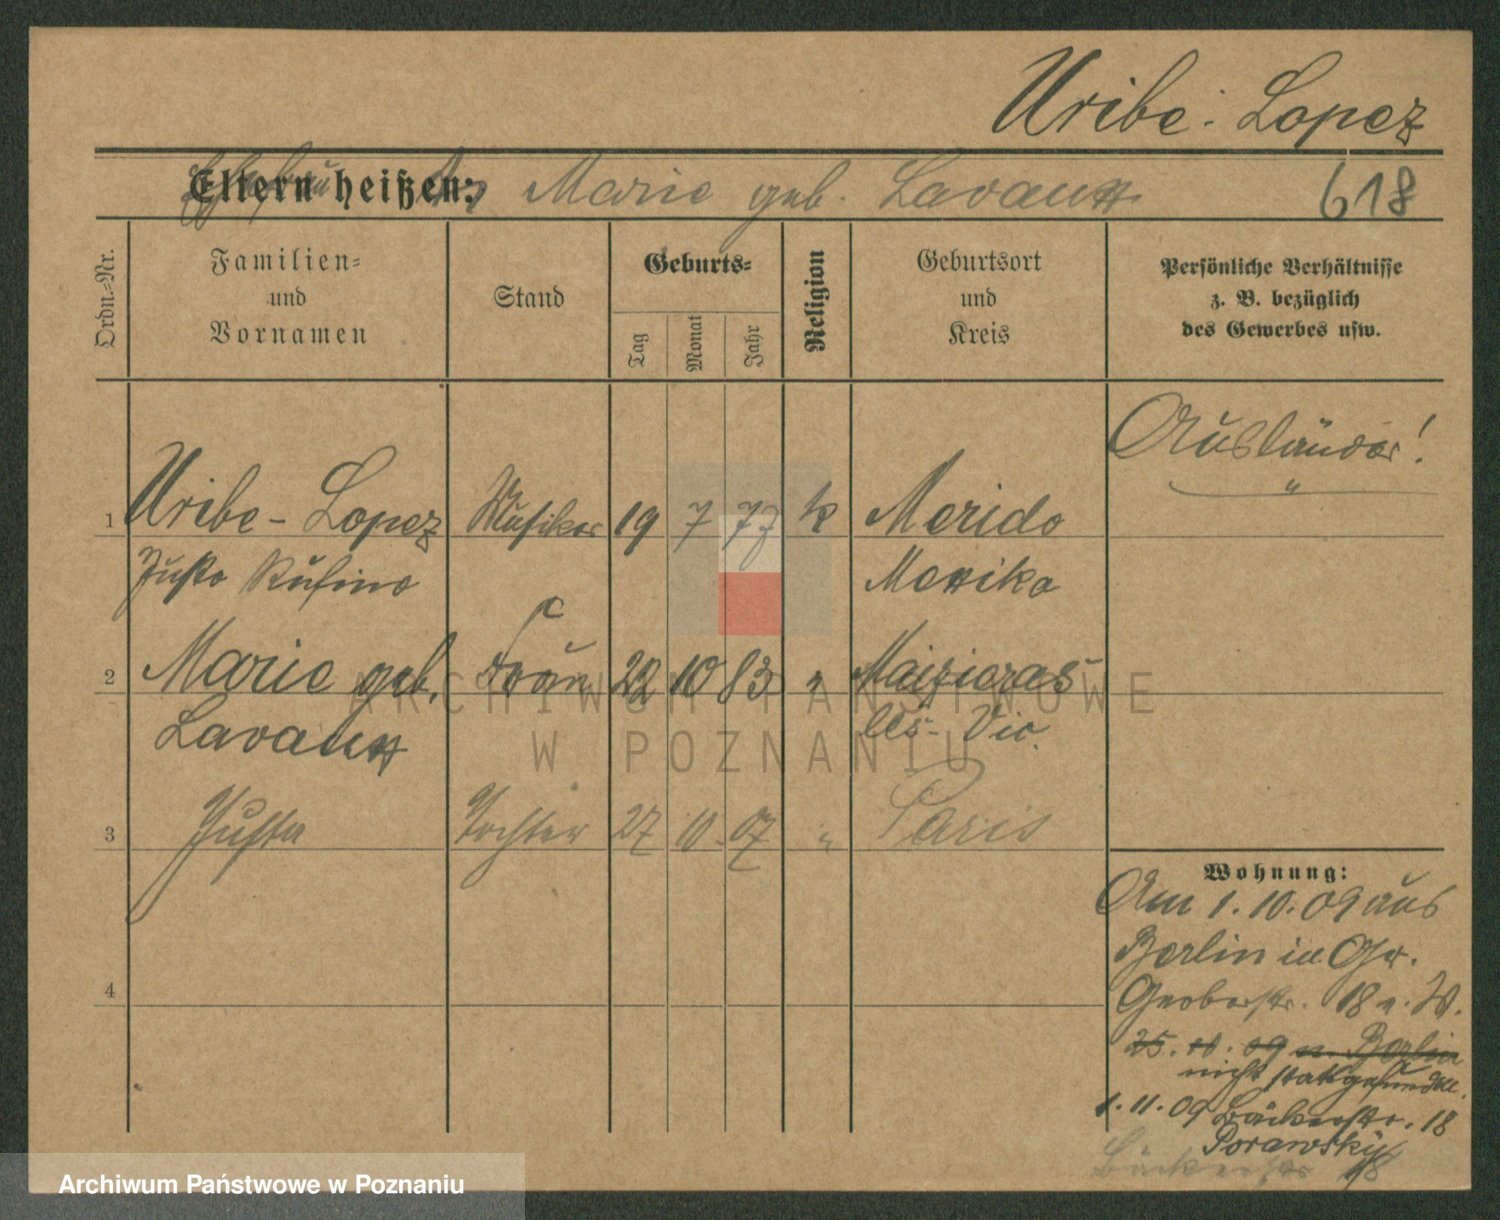 Uribe - Lopez
Eltern heißen:
Marie geb. Lavaux
618
Ordn.-Nr.
Familien-
und
Vornamen
Stand
Geburts-
Tag
Monat
Jahr
Religion
Geburtsort
und
Kreis
Persönliche Verhältnisse
z. B. bezüglich
des Gewerbes usw.
Ausländer!
1 Uribe - Lopez Musiker 19 7 77 k Merido
Justo Rufino Mexiko
2 Marie geb. Frau 22 10 83 " Maizieres
Lavaux les - Vic.
3 Justa Tochter 27 10 07 " Paris
4
Wohnung:
Am 1. 10. 09 aus
Berlin in Gr.
Gerberstr. 18 b. W.
25. 10. 09 n. Berlin
nicht stattgefunden.
1. 11. 09 Bäckerstr. 18
Porawski
Bäckerstr 18
ARCHIWUM PAŃSTWOWE
W POZNANIU
Archiwum Państwowe w Poznaniu